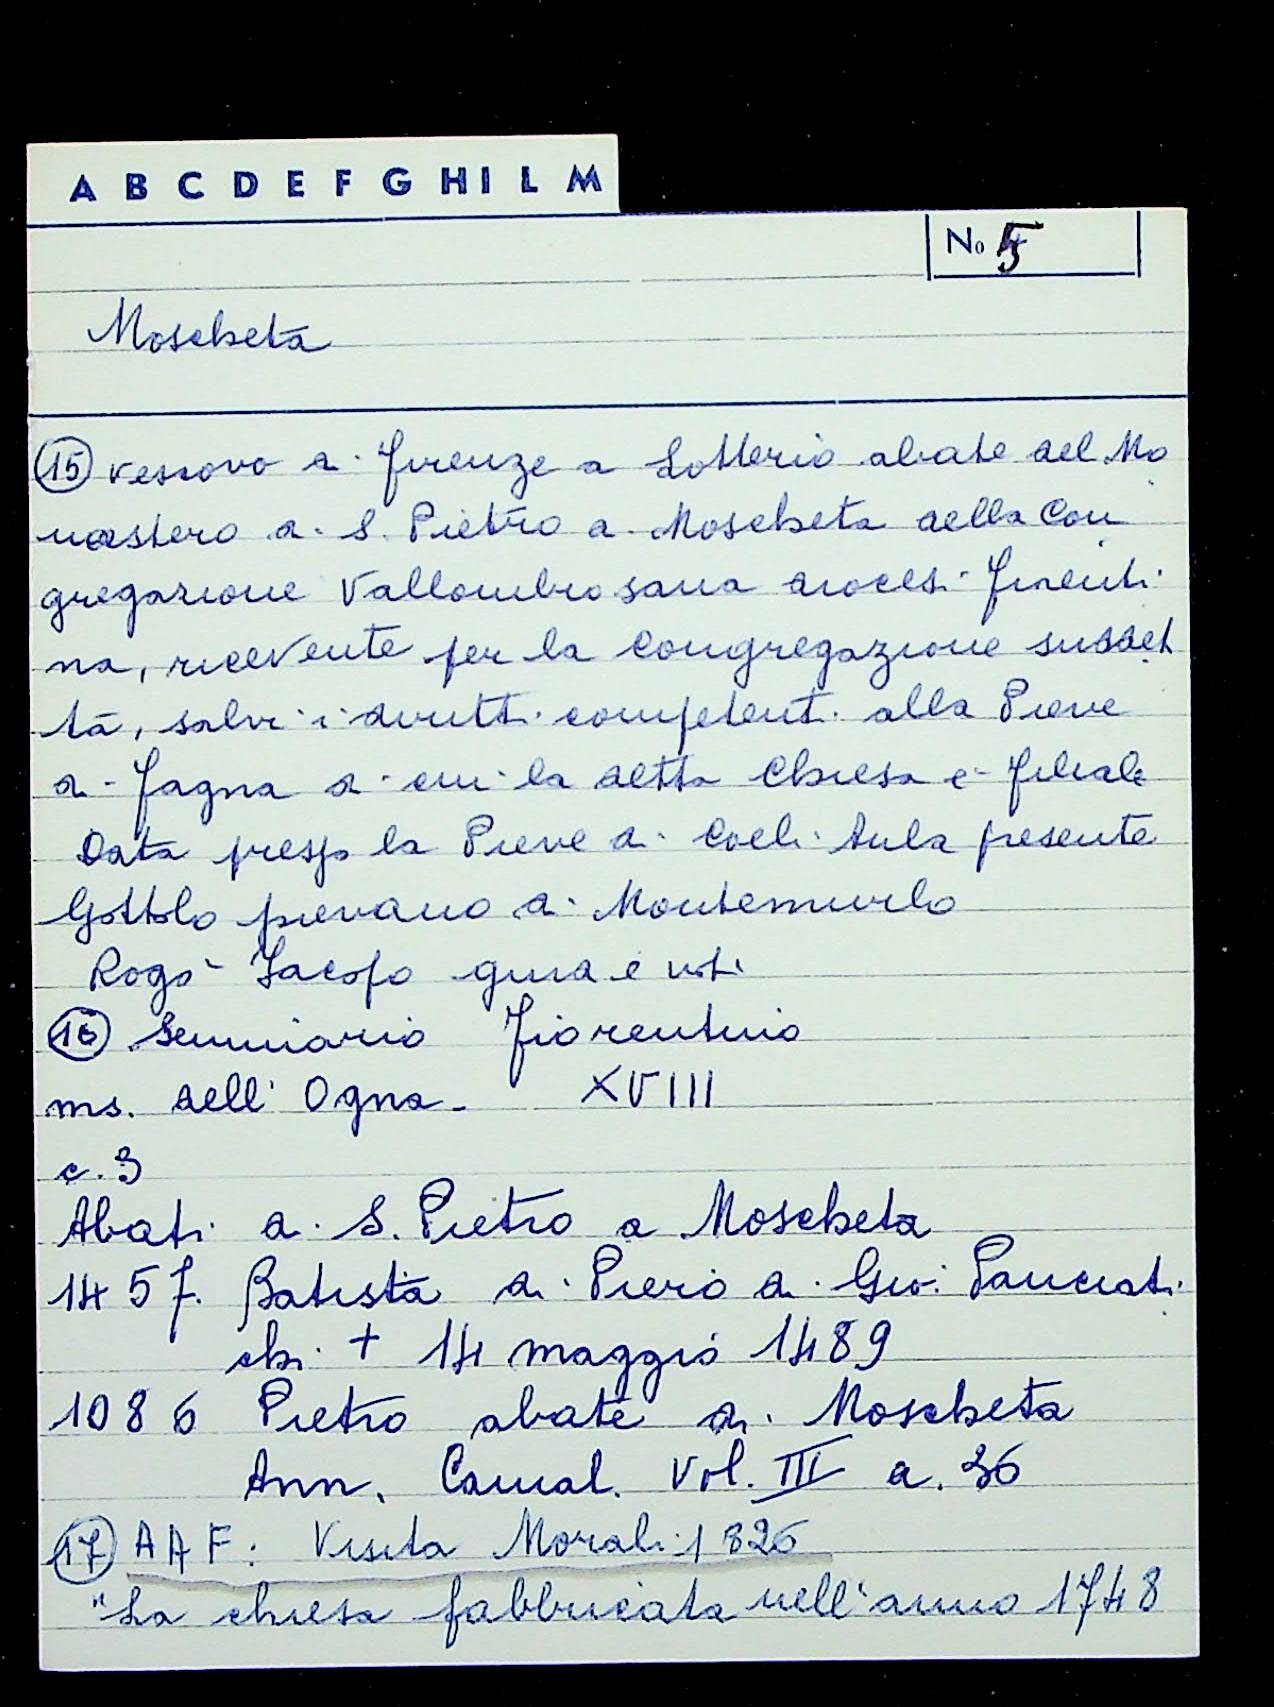 A B C D E F G H I L M
No 5
Moscheta
15 vescovo di Firenze a Lotterio abate del Mo
nastero di S. Pietro a Moscheta della Con
gregazione Vallombrosana diocesi fiorenti
na, ricevente per la congregazione suddet
ta, salvi i diritti competenti alla Pieve
di Fagna di cui la detta Chiesa è filiale
Data presso la Pieve di Coeli Aula presente
Gottolo pievano di Montemurlo
Rogò Jacopo giud e not.
16 Seminario Fiorentino
ms. dell' Ogna - XVIII
c. 3
Abati di S. Pietro a Moscheta
1457. Batista di Piero di Gio: Panciati
chi + 14 maggio 1489
1086 Pietro abate di Moscheta
Ann. Camal. Vol. III a. 36
17 AAF: Visita Morali 1826
"La chiesa fabbricata nell'anno 1748